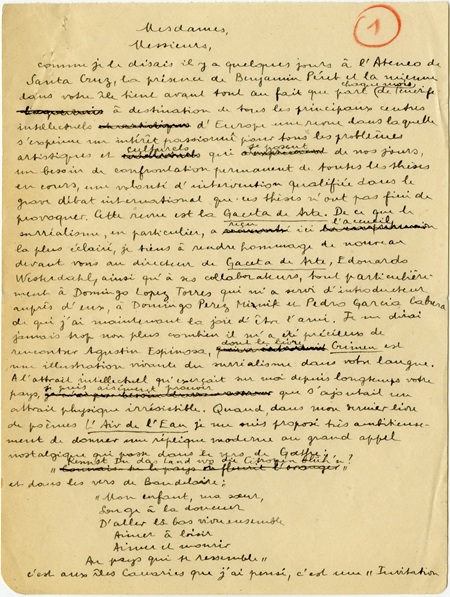 1
Mesdames,
Messieurs,
comme je le disais il y a quelques jours à l'Ateneo de
Santa Cruz, la présence de Benjamin Péret et la mienne
dans votre île tient avant tout au fait que part chaque mois (de Ténérife
à destination de tous les principaux centres
intellectuels d'Europe une revue dans laquelle
s'exprime un intérêt passionné pour tous les problèmes
artistiques et culturels qui se posent de nos jours,
un besoin de confrontation permanent de toutes les thèses
en cours, une volonté d'intervention qualifiée dans le
grave débat international que ces thèses n'ont pas fini de
provoquer. Cette revue est la Gaceta de Arte. De ce que le
surréalisme, en particulier, a reçu ici l'accueil
le plus éclairé, je tiens à rendre hommage de nouveau
devant vous au directeur de Gaceta de Arte, Edouardo
Westerdahl, ainsi qu'à ses collaborateurs, tout particulière-
ment à Domingo Lopez Torres qui m'a servi d'introducteur
auprès d'eux, à Domingo Perez Minik et Pedro Garcia Cabrera
de qui j'ai maintenant la joie d'être l'ami. Je ne dirai
jamais trop non plus combien il m'a été précieux de
rencontrer Agustin Espinosa, dont le livre Crimen est
une illustration vivante du surréalisme dans votre langue.
A l'attrait intellectuel qu'exerçait sur moi depuis longtemps votre
pays, je puis aisément prouver que s'ajoutait un
attrait physique irrésistible. Quand dans mon dernier livre
de poèmes L'Air de l'Eau je me suis proposé très ambitieuse-
ment de donner une réplique moderne au grand appel
nostalgique qui passe dans le vers de Gœthe :
" Kennst Du das Land wo die Citronen blüh'n ?
" Connais-tu le pays où fleurit l'oranger "
et dans les vers de Baudelaire :
" Mon enfant, ma sœur,
Songe à la douceur
D'aller là-bas vivre ensemble
Aimer à loisir
Aimer et mourir
Au pays qui te ressemble "
c'est aux îles Canaries que j'ai pensé, c'est une " Invitation